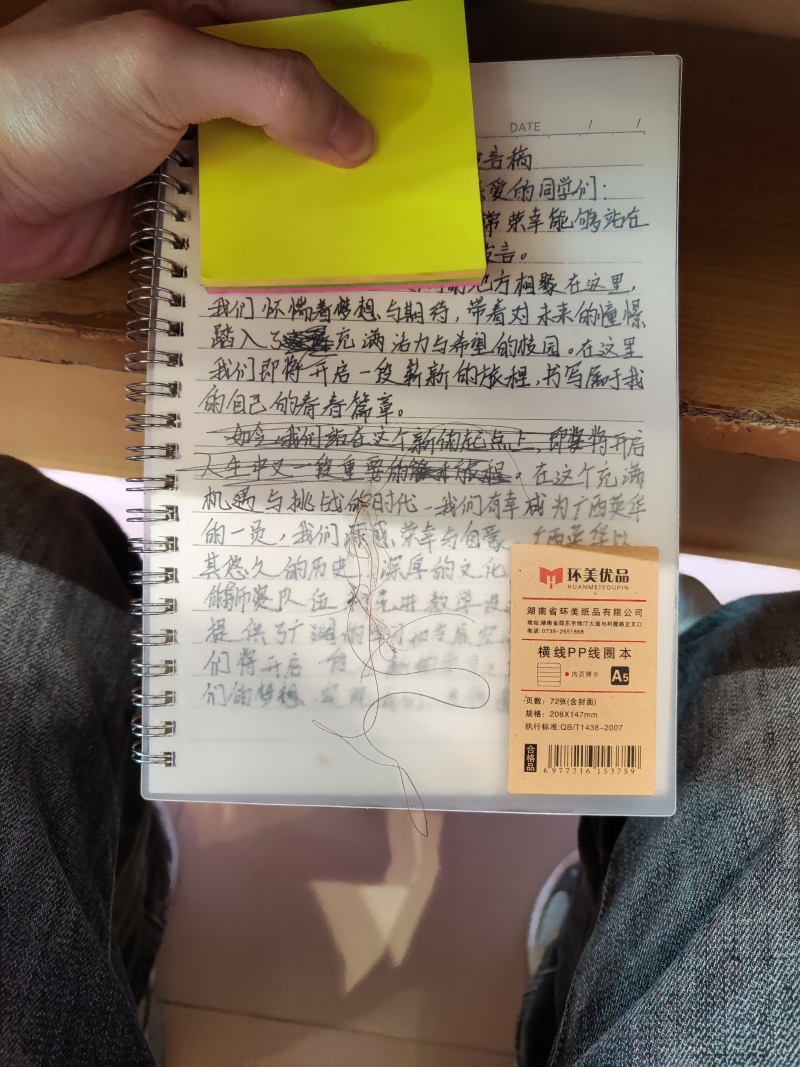 DATE / /
言稿
爱的同学们：
荣幸能够站在
言。
地方相聚在这里，
我们怀惴着梦想与期待，带着对未来的憧憬
踏入了充满活力与希望的校园。在这里
我们即将开启一段崭新的旅程，书写属于我
的自己的青春篇章。
如今，我们站在这个新的起点上，即将开启
人生中又一段重要的旅程。在这个充满
机遇与挑战的时代，我们有幸成为广西英华
的一员，我们深感荣幸与自豪。广西英华以
其悠久的历史、深厚的文化
师资队伍和先进教学设
提供了广阔的
们将开启一段
们的梦想
环美优品
HUANMEIYOUPIN
湖南省环美纸品有限公司
地址:湖南省邵东市绵汀大道与利雅路交叉口
电话:0739-2651868
横线PP线圈本
内页展示 A5
页数：72张(含封面)
规格：208X147mm
执行标准:QB/T1438-2007
合格品
6977216153759